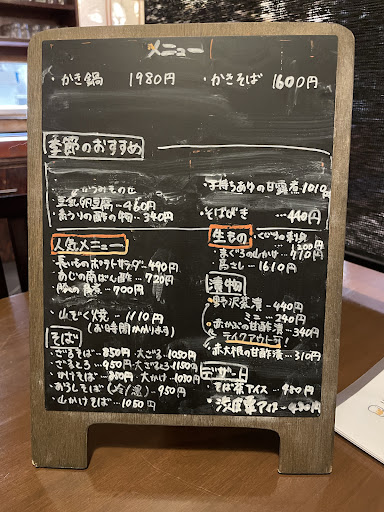 メニュー
・かき鍋 1980円 ・かきそば 1600円
季節のおすすめ
かつみそのせ
・豆乳卵豆腐…460円
・きゅうりの酢の物…340円
・子持ちあゆの甘露煮 1010円
・そばがき …440円
人気メニュー
・長いものポテトサラダ…490円
・あじの南ばん酢…720円
・豚の角煮…700円
・山ぞく焼…1110円
(お時間かかります)
生もの
・まぐろの刺身 1200円
・まぐろの山かけ…710円
・馬さし…1610円
漬物
・野沢菜漬…440円
ミニ…240円
・赤かぶの甘酢漬…340円
テイクアウト可!
・赤大根の甘酢漬…310円
そば
・ざるそば…850円 大ざる…1050円
・ざるとろ…950円 大ざるとろ…1150円
・かけそば…850円 大かけ…1050円
・おろしそば(冷/温)…950円
・山かけそば…1050円
デザート
・そば茶アイス…480円